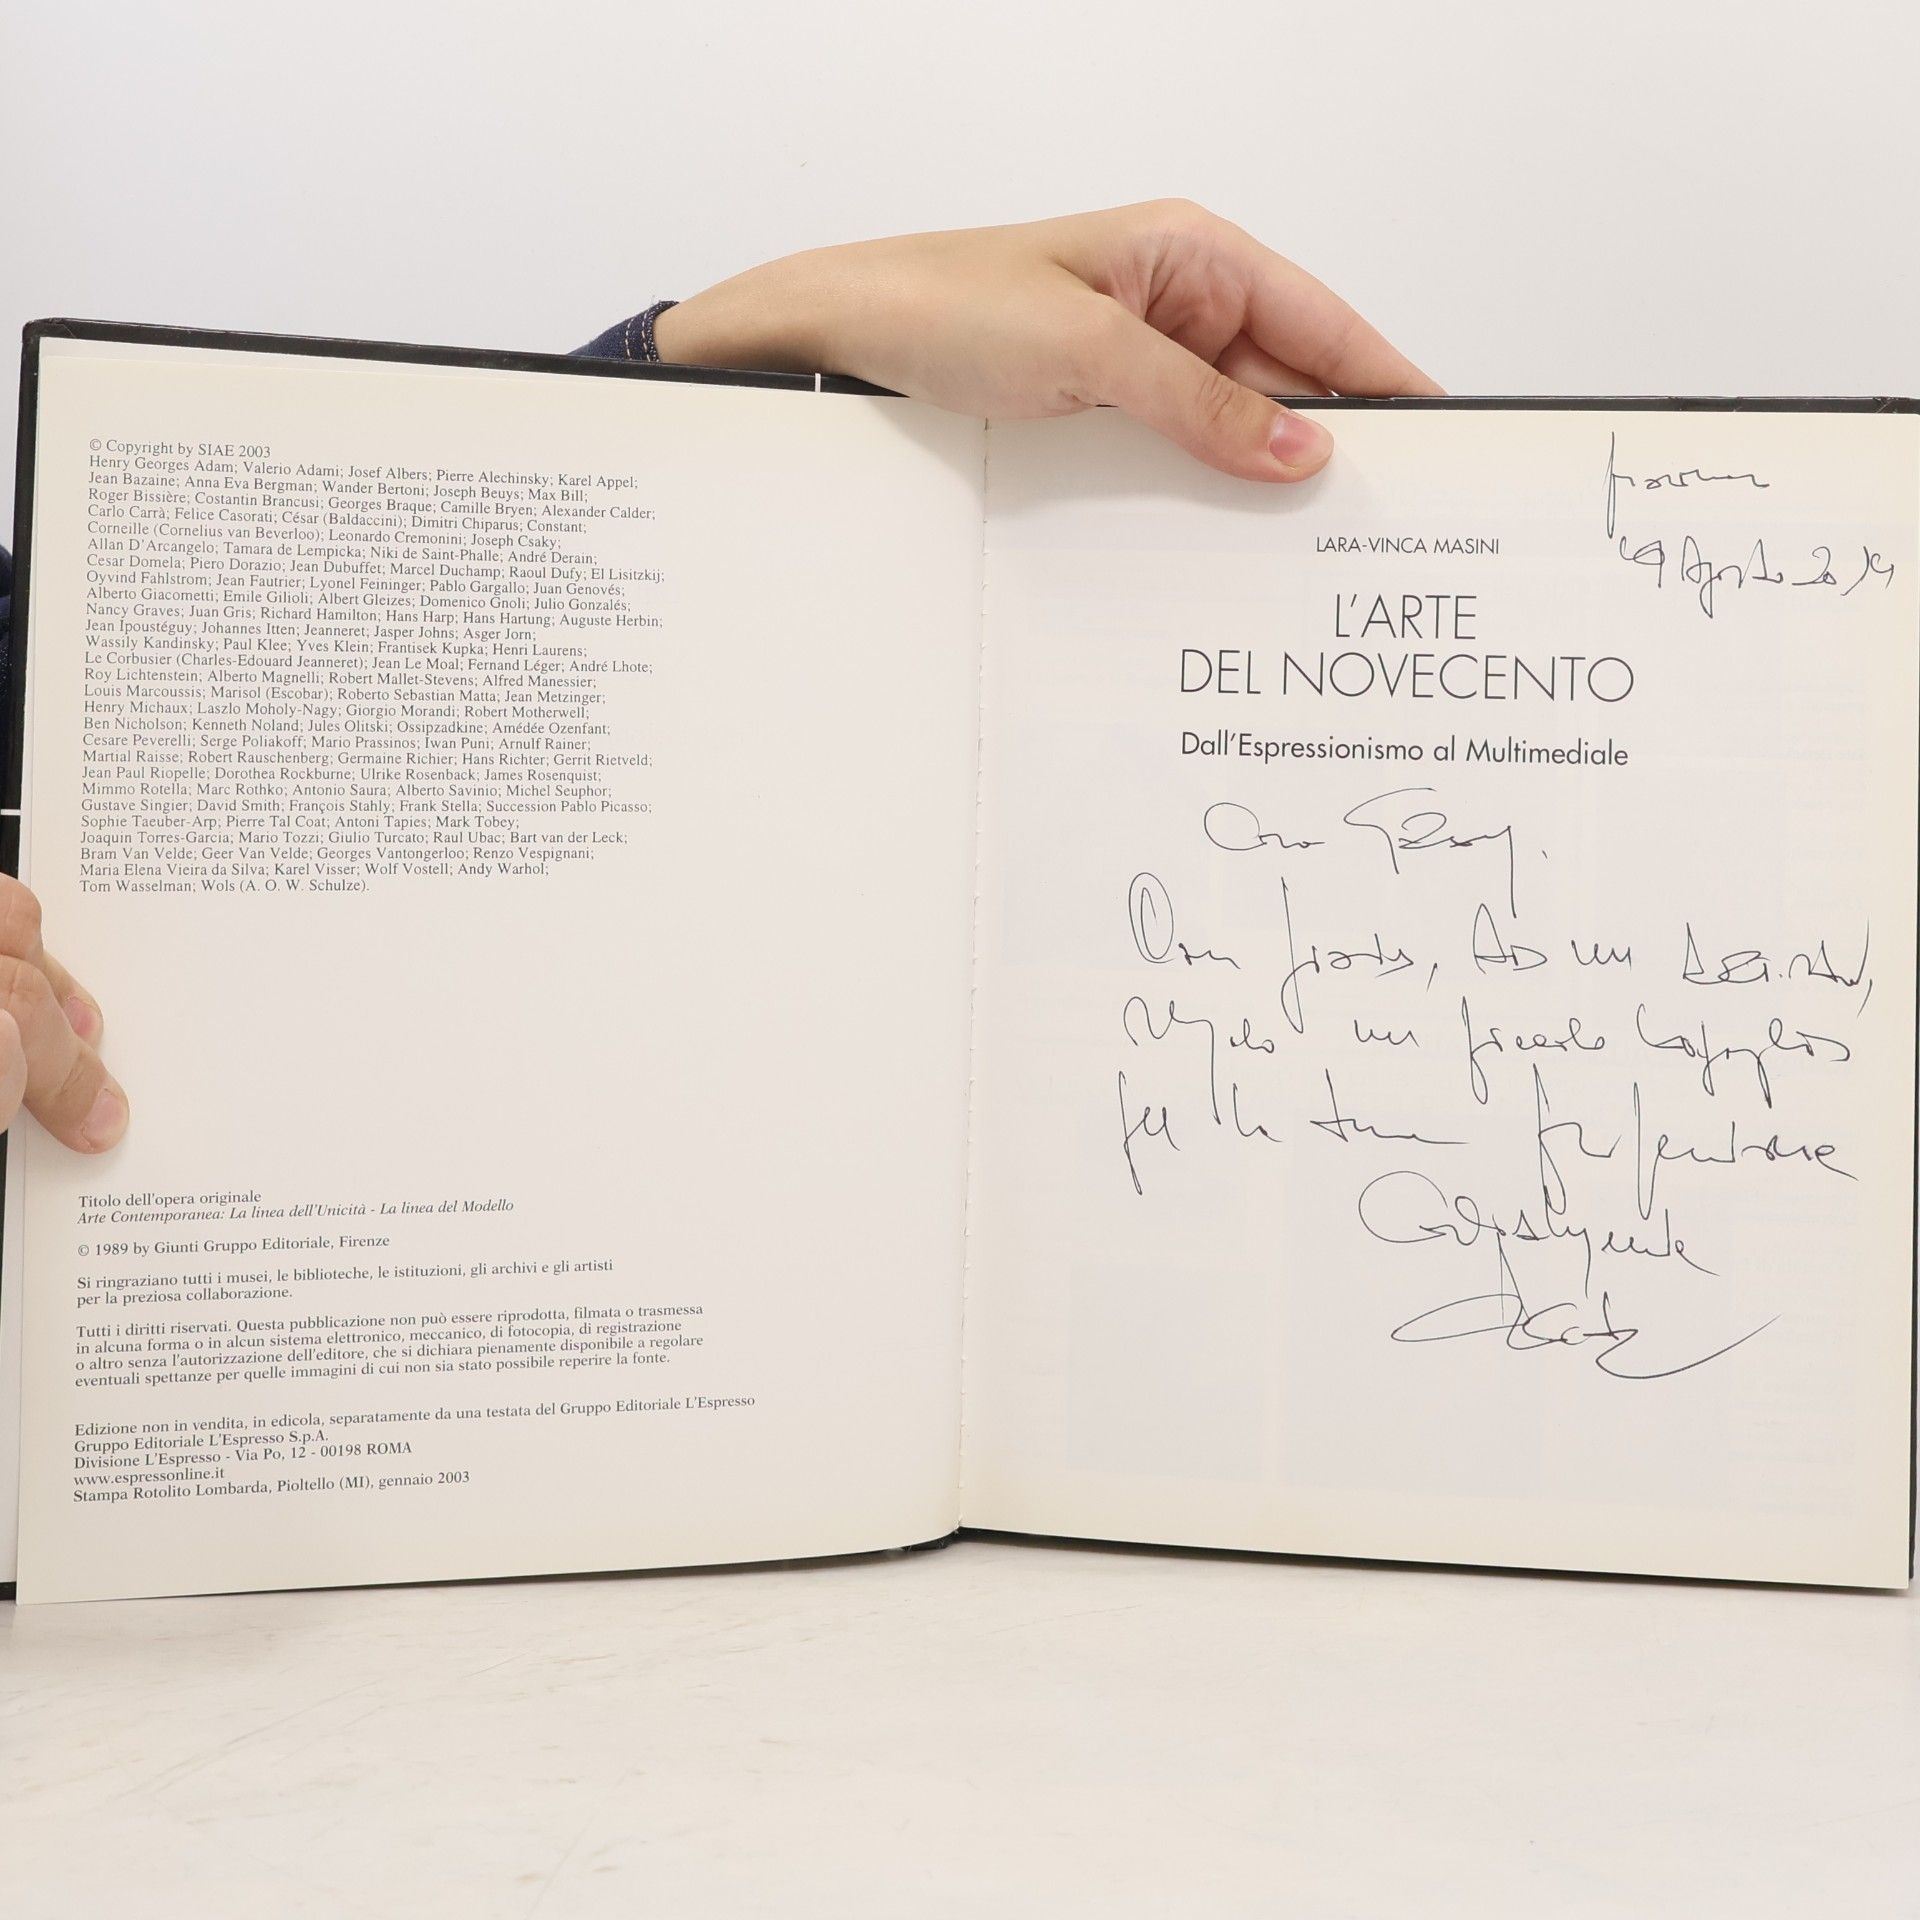 © Copyright by SIAE 2003
Henry Georges Adam; Valerio Adami; Josef Albers; Pierre Alechinsky; Karel Appel;
Jean Bazaine; Anna Eva Bergman; Wander Bertoni; Joseph Beuys; Max Bill;
Roger Bissière; Costantin Brancusi; Georges Braque; Camille Bryen; Alexander Calder;
Carlo Carrà; Felice Casorati; César (Baldaccini); Dimitri Chiparus; Constant;
Corneille (Cornelius van Beverloo); Leonardo Cremonini; Joseph Csaky;
Allan D'Arcangelo; Tamara de Lempicka; Niki de Saint-Phalle; André Derain;
Cesar Domela; Piero Dorazio; Jean Dubuffet; Marcel Duchamp; Raoul Dufy; El Lisitzkij;
Oyvind Fahlstrom; Jean Fautrier; Lyonel Feininger; Pablo Gargallo; Juan Genovés;
Alberto Giacometti; Emile Gilioli; Albert Gleizes; Domenico Gnoli; Julio Gonzalés;
Nancy Graves; Juan Gris; Richard Hamilton; Hans Harp; Hans Hartung; Auguste Herbin;
Jean Ipoustéguy; Johannes Itten; Jeanneret; Jasper Johns; Asger Jorn;
Wassily Kandinsky; Paul Klee; Yves Klein; Frantisek Kupka; Henri Laurens;
Le Corbusier (Charles-Edouard Jeanneret); Jean Le Moal; Fernand Léger; André Lhote;
Roy Lichtenstein; Alberto Magnelli; Robert Mallet-Stevens; Alfred Manessier;
Louis Marcoussis; Marisol (Escobar); Roberto Sebastian Matta; Jean Metzinger;
Henry Michaux; Laszlo Moholy-Nagy; Giorgio Morandi; Robert Motherwell;
Ben Nicholson; Kenneth Noland; Jules Olitski; Ossipzadkine; Amédée Ozenfant;
Cesare Peverelli; Serge Poliakoff; Mario Prassinos; Iwan Puni; Arnulf Rainer;
Martial Raisse; Robert Rauschenberg; Germaine Richier; Hans Richter; Gerrit Rietveld;
Jean Paul Riopelle; Dorothea Rockburne; Ulrike Rosenback; James Rosenquist;
Mimmo Rotella; Marc Rothko; Antonio Saura; Alberto Savinio; Michel Seuphor;
Gustave Singier; David Smith; François Stahly; Frank Stella; Succession Pablo Picasso;
Sophie Taeuber-Arp; Pierre Tal Coat; Antoni Tapies; Mark Tobey;
Joaquin Torres-Garcia; Mario Tozzi; Giulio Turcato; Raul Ubac; Bart van der Leck;
Bram Van Velde; Geer Van Velde; Georges Vantongerloo; Renzo Vespignani;
Maria Elena Vieira da Silva; Karel Visser; Wolf Vostell; Andy Warhol;
Tom Wasselman; Wols (A. O. W. Schulze).
Titolo dell'opera originale
Arte Contemporanea: La linea dell'Unicità - La linea del Modello
© 1989 by Giunti Gruppo Editoriale, Firenze
Si ringraziano tutti i musei, le biblioteche, le istituzioni, gli archivi e gli artisti
per la preziosa collaborazione.
Tutti i diritti riservati. Questa pubblicazione non può essere riprodotta, filmata o trasmessa
in alcuna forma o in alcun sistema elettronico, meccanico, di fotocopia, di registrazione
o altro senza l'autorizzazione dell'editore, che si dichiara pienamente disponibile a regolare
eventuali spettanze per quelle immagini di cui non sia stato possibile reperire la fonte.
Edizione non in vendita, in edicola, separatamente da una testata del Gruppo Editoriale L'Espresso
Gruppo Editoriale L'Espresso S.p.A.
Divisione L'Espresso - Via Po, 12 - 00198 ROMA
www.espressonline.it
Stampa Rotolito Lombarda, Pioltello (MI), gennaio 2003
Agosto 2014
LARA-VINCA MASINI
L'ARTE
DEL NOVECENTO
Dall'Espressionismo al Multimediale
Caro
Con ad un
un piccolo
per la tua
Cordialmente